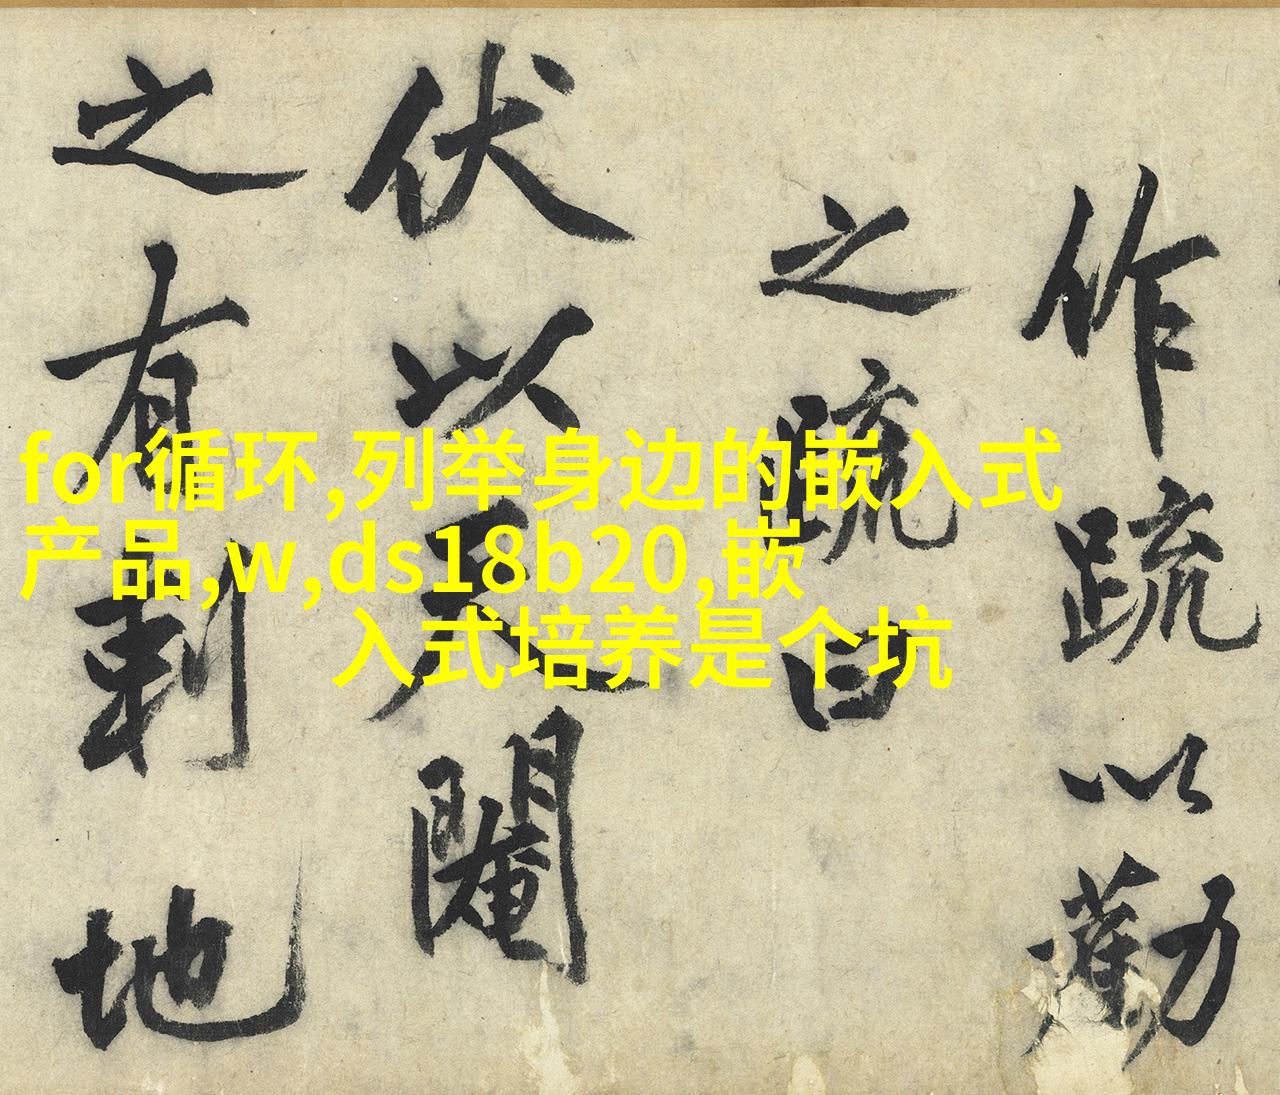 作疏以勸
之疏曰
伏以天閹
之有刺地
for循环,列举身边的嵌入式
产品,w,ds18b20,嵌
入式培养是个坑